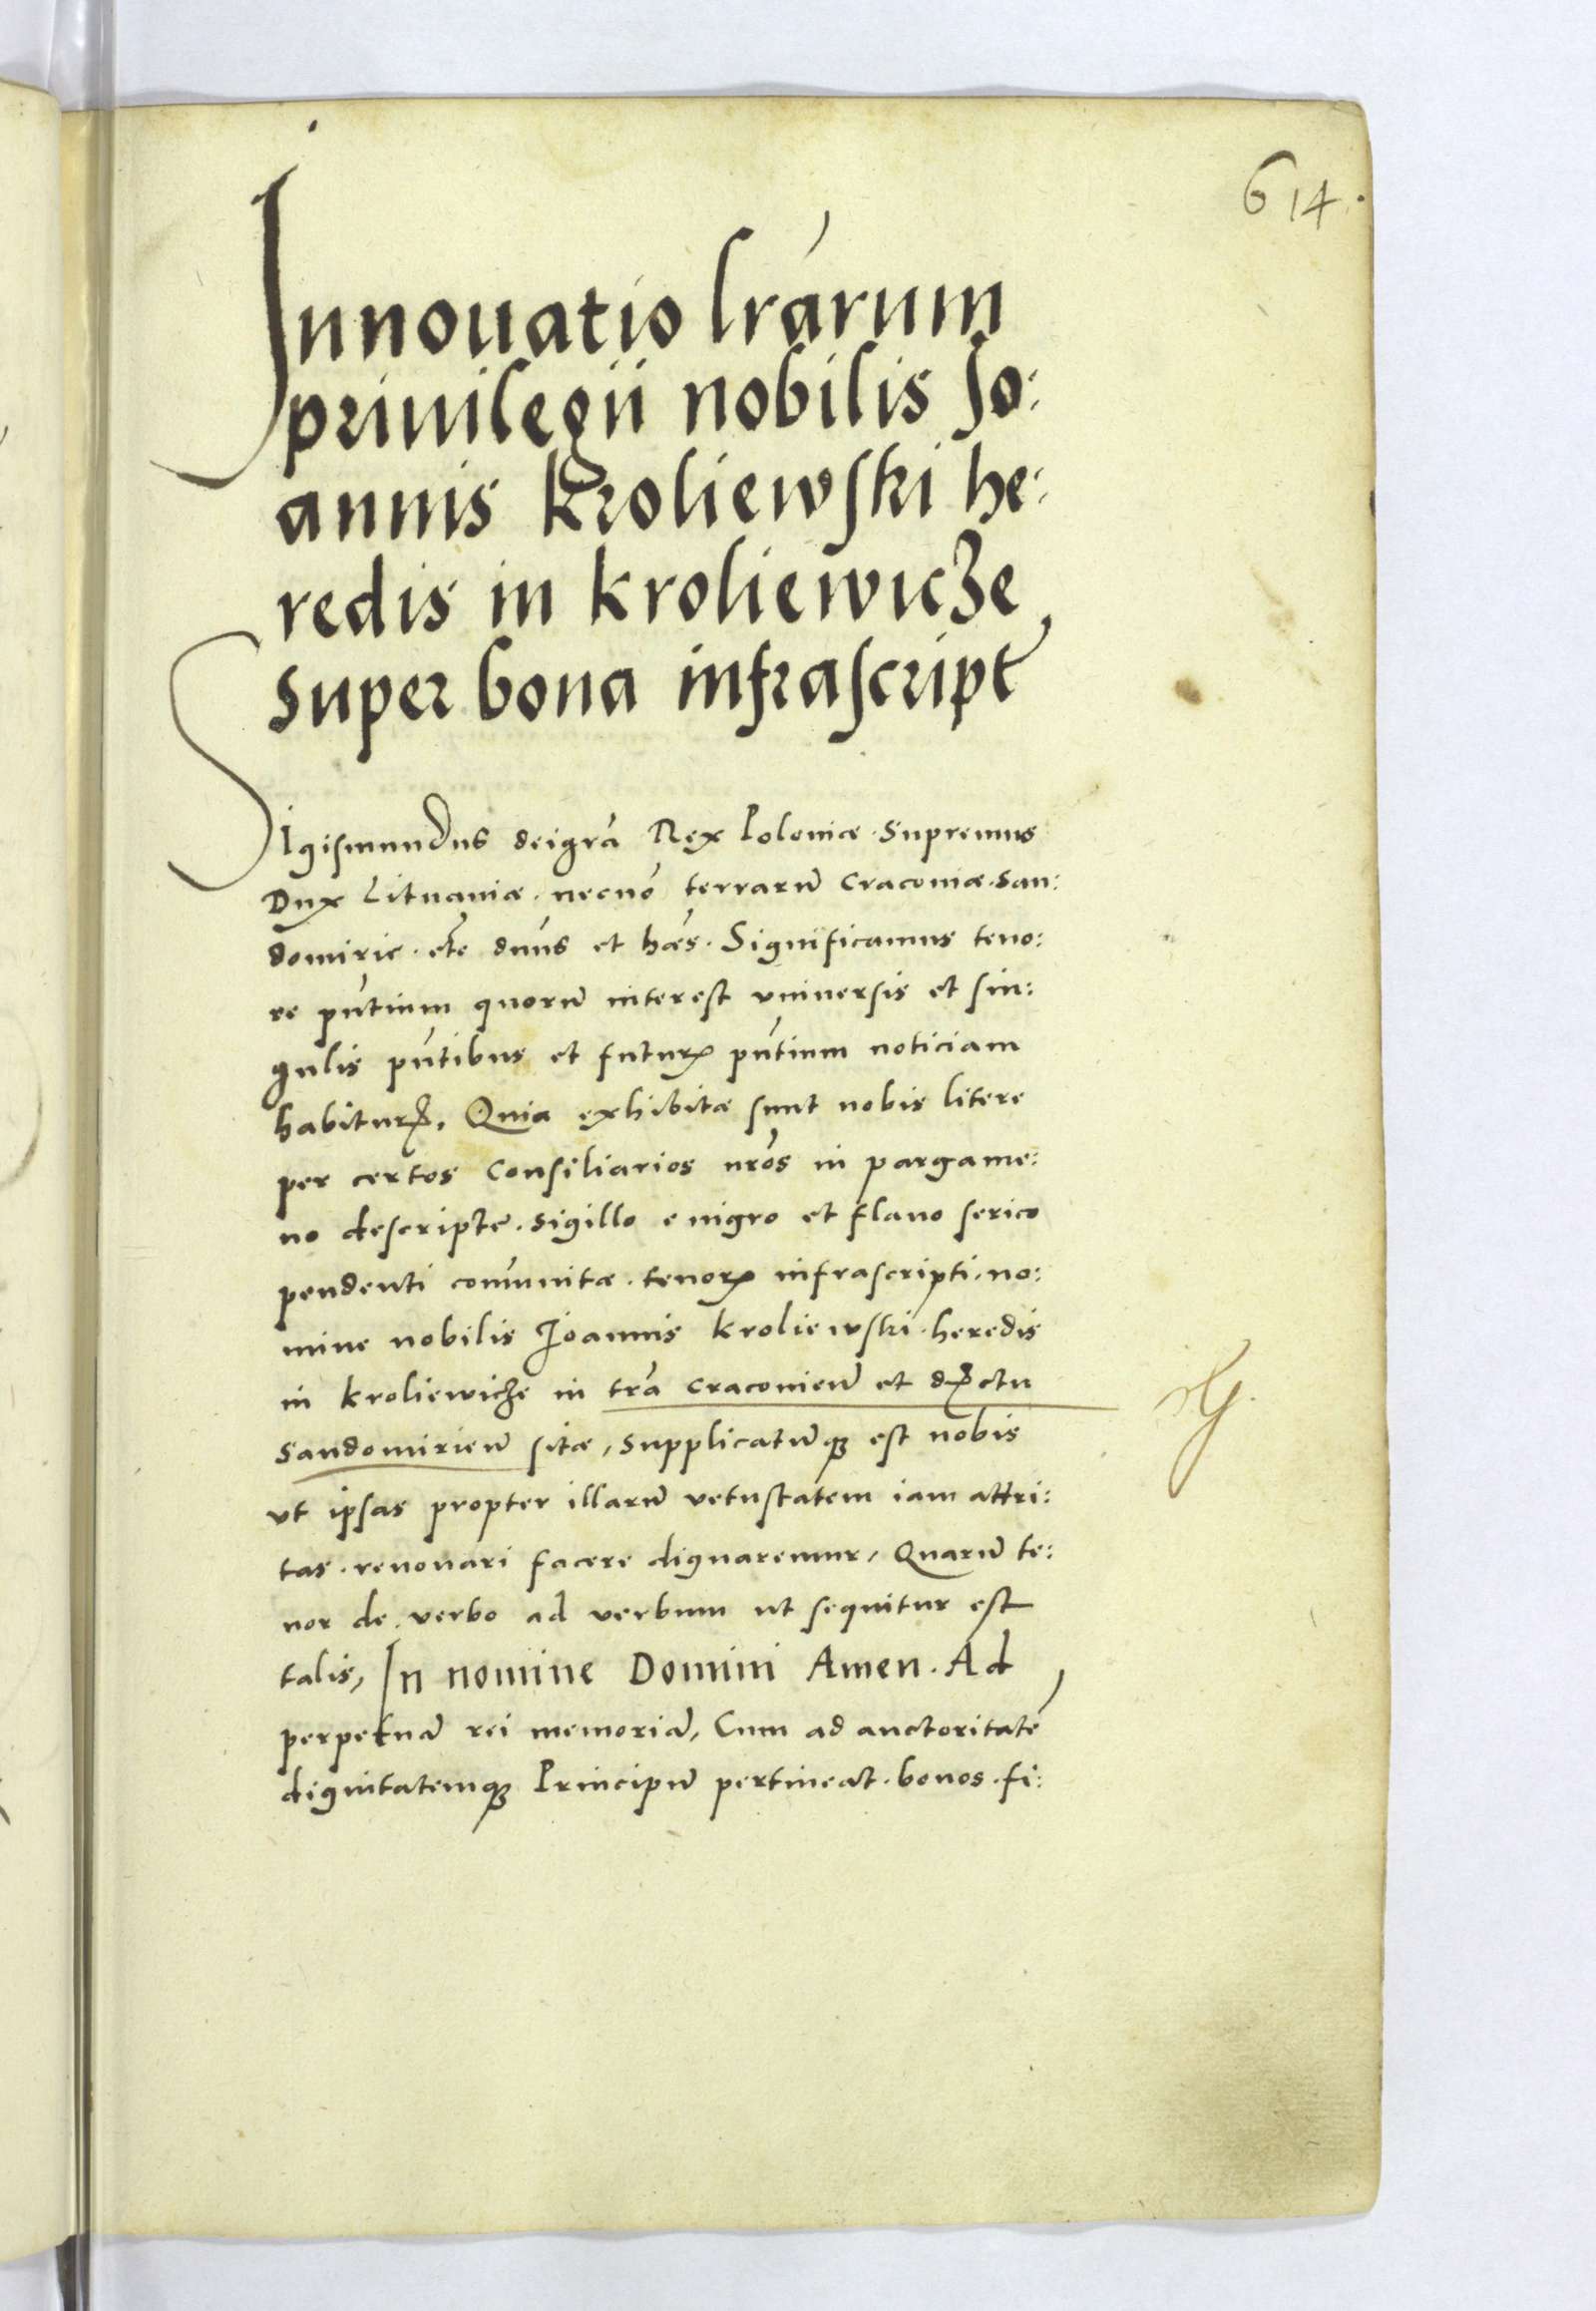 614.
Innouatio lrārum
priuilegii nobilis Jo:
annis Kroliewski he:
redis in kroliewicze
super bona infrascript
Sigismundus deigrā Rex Poloniæ. Supremus
Dux Lituaniæ. necnō terrarū Cracouiæ. San:
domirie. etc̄ dn̄us et hæs. Significamus teno:
re pn̄tium quorū interest vniuersis et sin:
gulis pn̄tibus et futurꝝ pn̄tium noticiam
habiturꝝ. Quia exhibitæ sunt nobis litere
per certos Consiliarios nrōs in pargame:
no descriptæ. sigillo e nigro et flauo serico
pendenti com̄unitæ. tenorꝝ infrascripti. no:
mine nobilis Joannis kroliewski. heredis
in kroliewicze in trā cracouieñ et dꝝctu
Sandomirieñ sitæ, supplicatūqꝫ est nobis
vt ipsas propter illarū vetustatem iam attri:
tas. renouari facere dignaremur, Quarū te:
nor de verbo ad verbum ut sequitur est
talis, In nomine Domini Amen. Ad
perpetuā rei memoriā, Cum ad auctoritatē
dignitatemqꝫ Principū pertineat. bonos. fi: